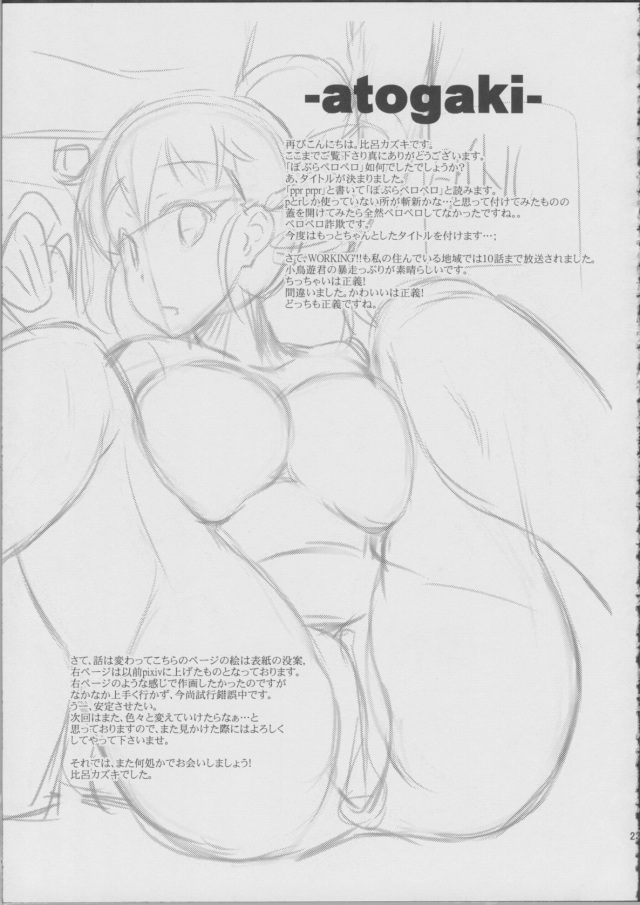 -atogaki-
再びこんにちは、比呂カズキです。
ここまでご覧下さり真にありがとうございます。
「ぽぷらペロペロ」如何でしたでしょうか?
あ、タイトルが決まりました。
「ppr prpr」と書いて「ぽぷらペロペロ」と読みます。
pとrしか使っていない所が斬新かな…と思って付けてみたものの
蓋を開けてみたら全然ペロペロしてなかったですね。。
ペロペロ詐欺です。
今度はもっとちゃんとしたタイトルを付けます…;
さて、WORKING'!!も私の住んでいる地域では10話まで放送されました。
小鳥遊君の暴走っぷりが素晴らしいです。
ちっちゃいは正義!
間違いました。かわいいは正義!
どっちも正義ですね。
さて、話は変わってこちらのページの絵は表紙の没案,
右ページは以前pixivに上げたものとなっております。
右ページのような感じで作画したかったのですが
なかなか上手く行かず、今尚試行錯誤中です。
うー、安定させたい。
次回はまた、色々と変えていけたらなぁ…と
思っておりますので、また見かけた際にはよろしく
してやって下さいませ。
それでは、また何処かでお会いしましょう!
比呂カズキでした。